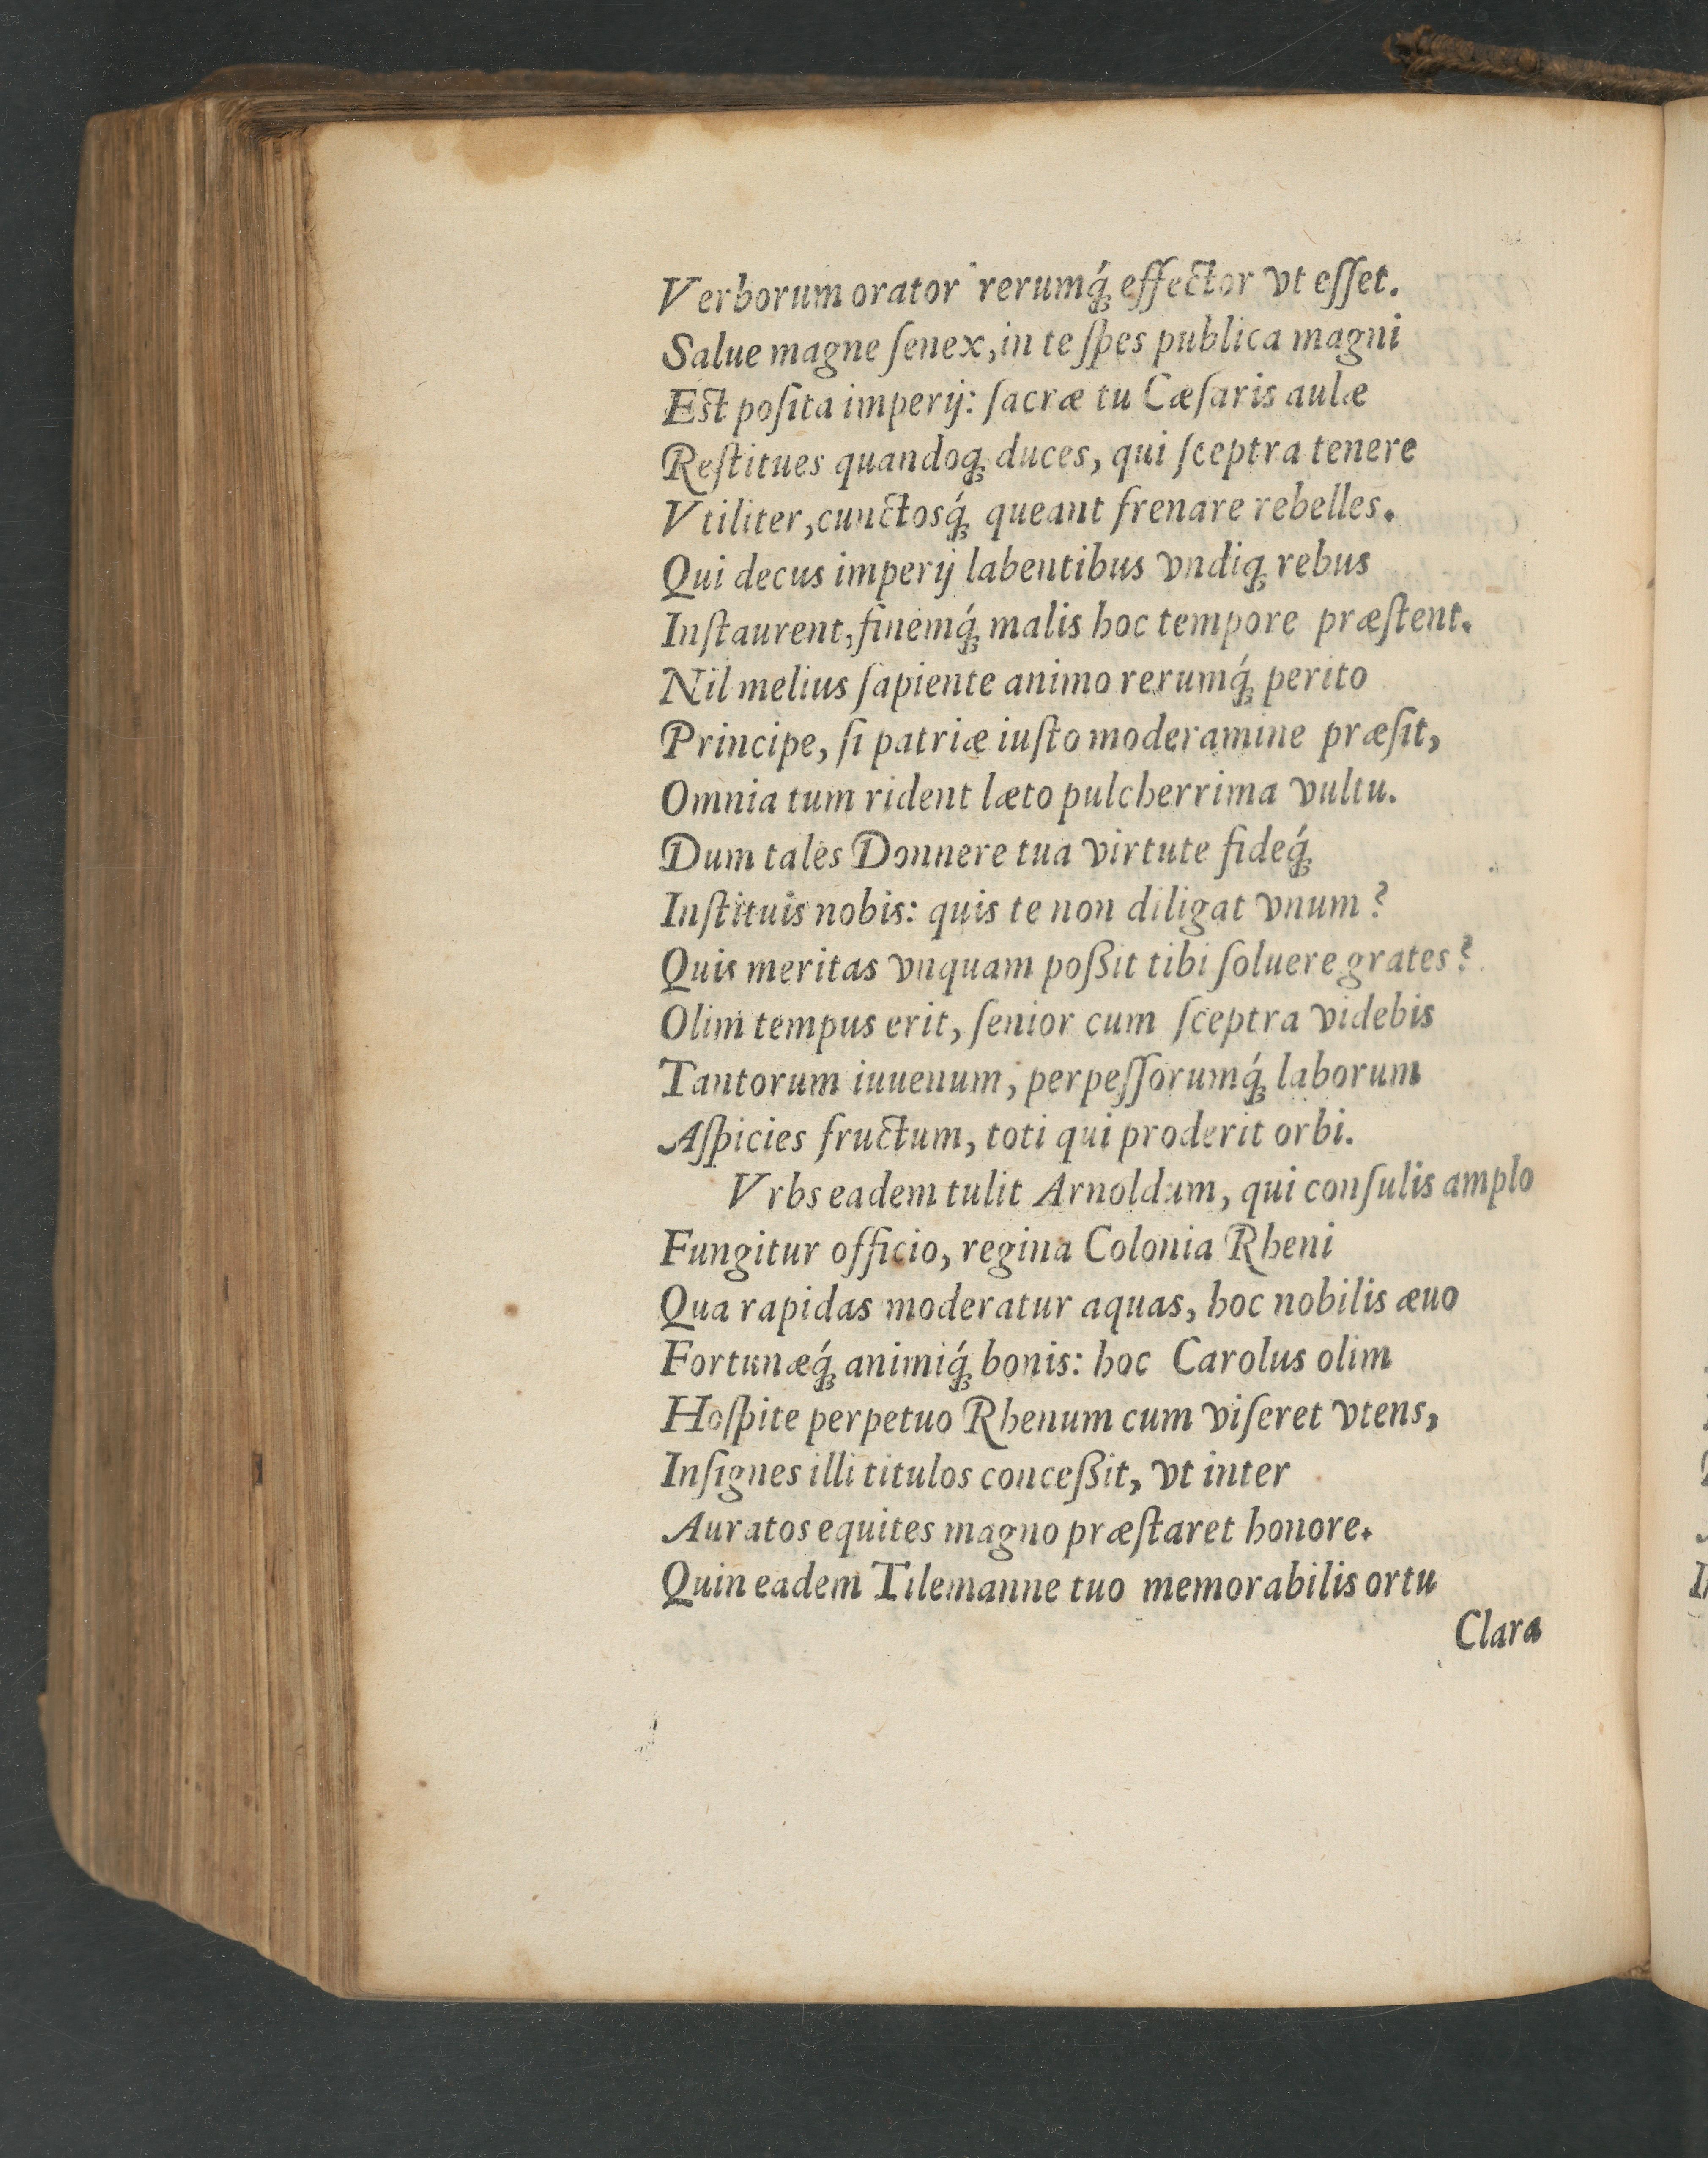 Verborum orator rerumq́; effector vt eſſet.
Salue magne ſenex, in te ſpes publica magni
Est poſita imperij: ſacræ tu Cæſaris aulæ
Reſtitues quandoq; duces, qui ſceptra tenere
Vtiliter, cunctosq́; queant frenare rebelles.
Qui decus imperij labentibus vndiq; rebus
Inſtaurent, finemq́; malis hoc tempore præſtent.
Nil melius ſapiente animo rerumq́; perito
Principe, ſi patriæ iuſto moderamine præſit,
Omnia tum rident læto pulcherrima vultu.
Dum tales Donnere tua virtute fideq́;
Inſtituis nobis: quis te non diligat vnum?
Quis meritas vnquam poßit tibi ſoluere grates?
Olim tempus erit, ſenior cum ſceptra videbis
Tantorum iuuenum, perpeſſorumq́; laborum
Aſpicies fructum, toti qui proderit orbi.
Vrbs eadem tulit Arnoldum, qui conſulis amplo
Fungitur officio, regina Colonia Rheni
Qua rapidas moderatur aquas, hoc nobilis æuo
Fortunæq́; animiq́; bonis: hoc Carolus olim
Hoſpite perpetuo Rhenum cum viſeret vtens,
Inſignes illi titulos conceßit, vt inter
Auratos equites magno præſtaret honore.
Quin eadem Tilemanne tuo memorabilis ortu
Clara